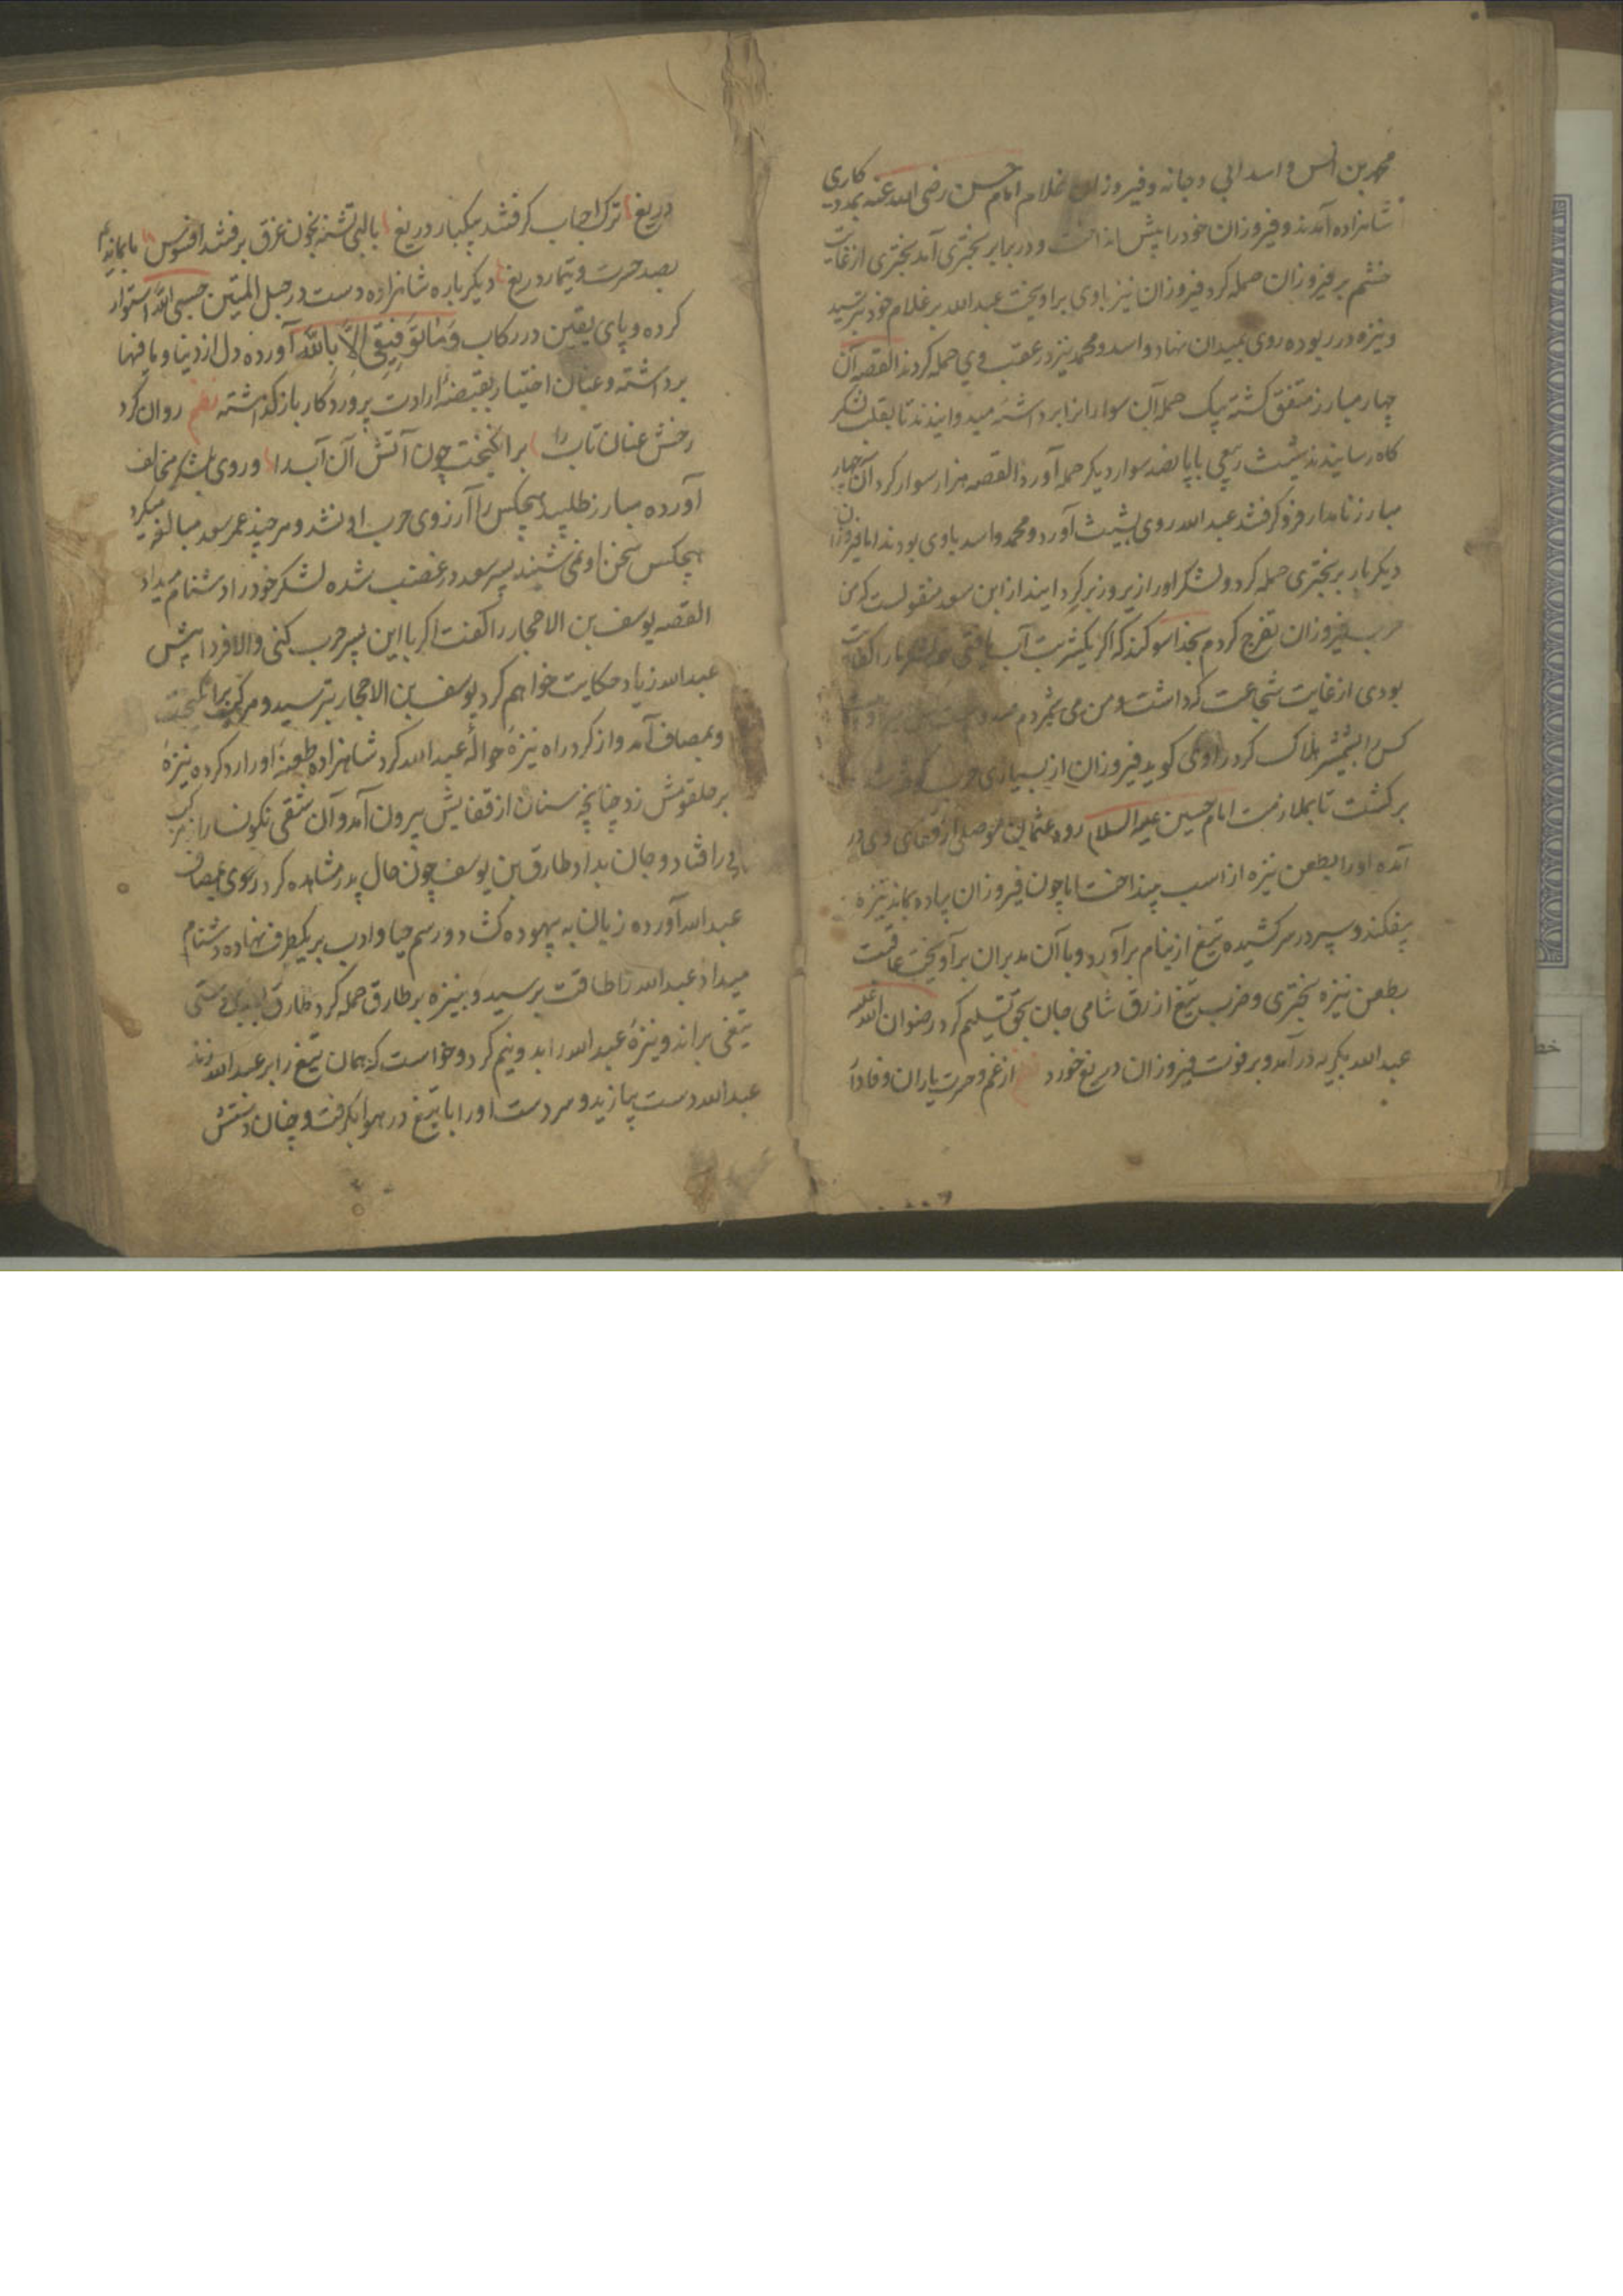 محمد بن انس و اسد ابی دجانه و فیروزان غلام امام حسن رضی الله عنه بمددکاری
شاهزاده آمدند و فیروزان خود را پیش انداخت و در برابر بختری آمد بختری از غایت
خشم بر فیروزان حمله کرد فیروزان نیز با وی برآویخت عبدالله بر غلام خود بترسید
و نیزه در ربوده روی بمیدان نهاد و اسد و محمد نیز در عقب وی حمله کردند القصه آن
چهار مبارز متفق کشته بیک حمله آن سوارانرا برداشته میدوانیدند تا بقلب لشکر
کاه رسانیدند شیث ربعی با پانصد سوار دیکر حمله آورد القصه هزار سوار کرد آن چهار
مبارز نامدار فرو کرفتند عبدالله روی بشیث آورد و محمد و اسد با وی بودند اما فیروزان
دیکر بار بر بختری حمله کرد و لشکر او را زیر و زبر کردانید از ابن سعد منقولست که من
حرب فیروزان تفرج کردم بخدا سوکند که اکر یکشربت آب یافتی همه لشکر ما را کفایت
بودی از غایت شجاعت که داشت و من می شمردم
کس را بشمشیر هلاک کرد راوی کوید فیروزان از بسیاری حرب
برکشت تا بملازمت امام حسین علیه السلام رود عثمان موصلی از قفای وی در
آمده او را بطعن نیزه از اسب بینداخت اما چون فیروزان پیاده بماند نیزه
بیفکند و سپر در سر کشیده تیغ از نیام برآورد و با آن مدبران برآویخت عاقبت
بطعن نیزه بختری و ضرب تیغ ازرق شامی جان بحق تسلیم کرد رضوان الله علیه
عبدالله بکریه درآمد و بر فوت فیروزان دریغ خورد از غم و حسرت یاران وفادار
دریغ ترک احباب کرفتند بیکبار دریغ با لبی تشنه بخون غرق برفتند افسوس ما بمانده‌ایم
بصد حسرت و تیمار دریغ دیکر باره شاهزاده دست در حبل المتین حسبی الله استوار
کرده و پای یقین در رکاب وَمَا تَوْفِیقِی اِلَّا بِاللّٰه آورده دل از دنیا و ما فیها
برداشته و عنان اختیار بقبضهٔ ارادت پروردکار بازکذاشته نظم روان کرد
رخش عنان تاب را برانکیخت چون آتش آن آب را و روی بلشکر مخالف
آورده مبارز طلبید هیچکس را آرزوی حرب او نشد و هر چند عمر سعد مبالغه میکرد
هیچکس سخن او نمی شنید پسر سعد در غضب شده لشکر خود را دشنام میداد
القصه یوسف بن الاحجار را کفت اکر با این پسر حرب کنی والا فردا پیش
عبدالله زیاد حکایت خواهم کرد یوسف بن الاحجار بترسید و مرکب برانکیخت
و بمصاف آمد و از کرد راه نیزهٔ حوالهٔ عبدالله کرد شاهزاده طعنهٔ او را رد کرده نیزهٔ
بر حلقومش زد چنانچه سنان از قفایش بیرون آمد و آن شقی نکونسار از مرکب
در افتاد و جان بداد طارق بن یوسف چون حال پدر مشاهده کرد روی بمصاف
عبدالله آورده زبان به بیهوده کشاد و رسم حیا و ادب بر یکطرف نهاده دشنام
میداد عبدالله را طاقت برسید و بنیزه بر طارق حمله کرد طارق
تیغی براند و نیزهٔ عبدالله را بدو نیم کرد و خواست که همان تیغ را بر عبدالله زند
عبدالله دست بیازید و سردست او را با تیغ در هوا بکرفت و چنان دستش